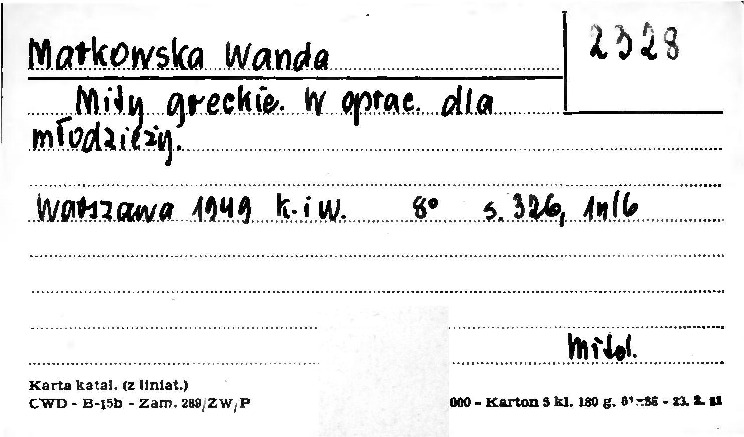 Markowska Wanda
2328
Mity greckie. W oprac. dla
młodzieży.
Warszawa 1949 K. i W. 8° s. 326, 1nlb
Mitol.
Karta katal. (z liniat.)
CWD - B-15b - Zam. 289/ZW/P
000 - Karton 3 kl. 180 g. - 23. 2.